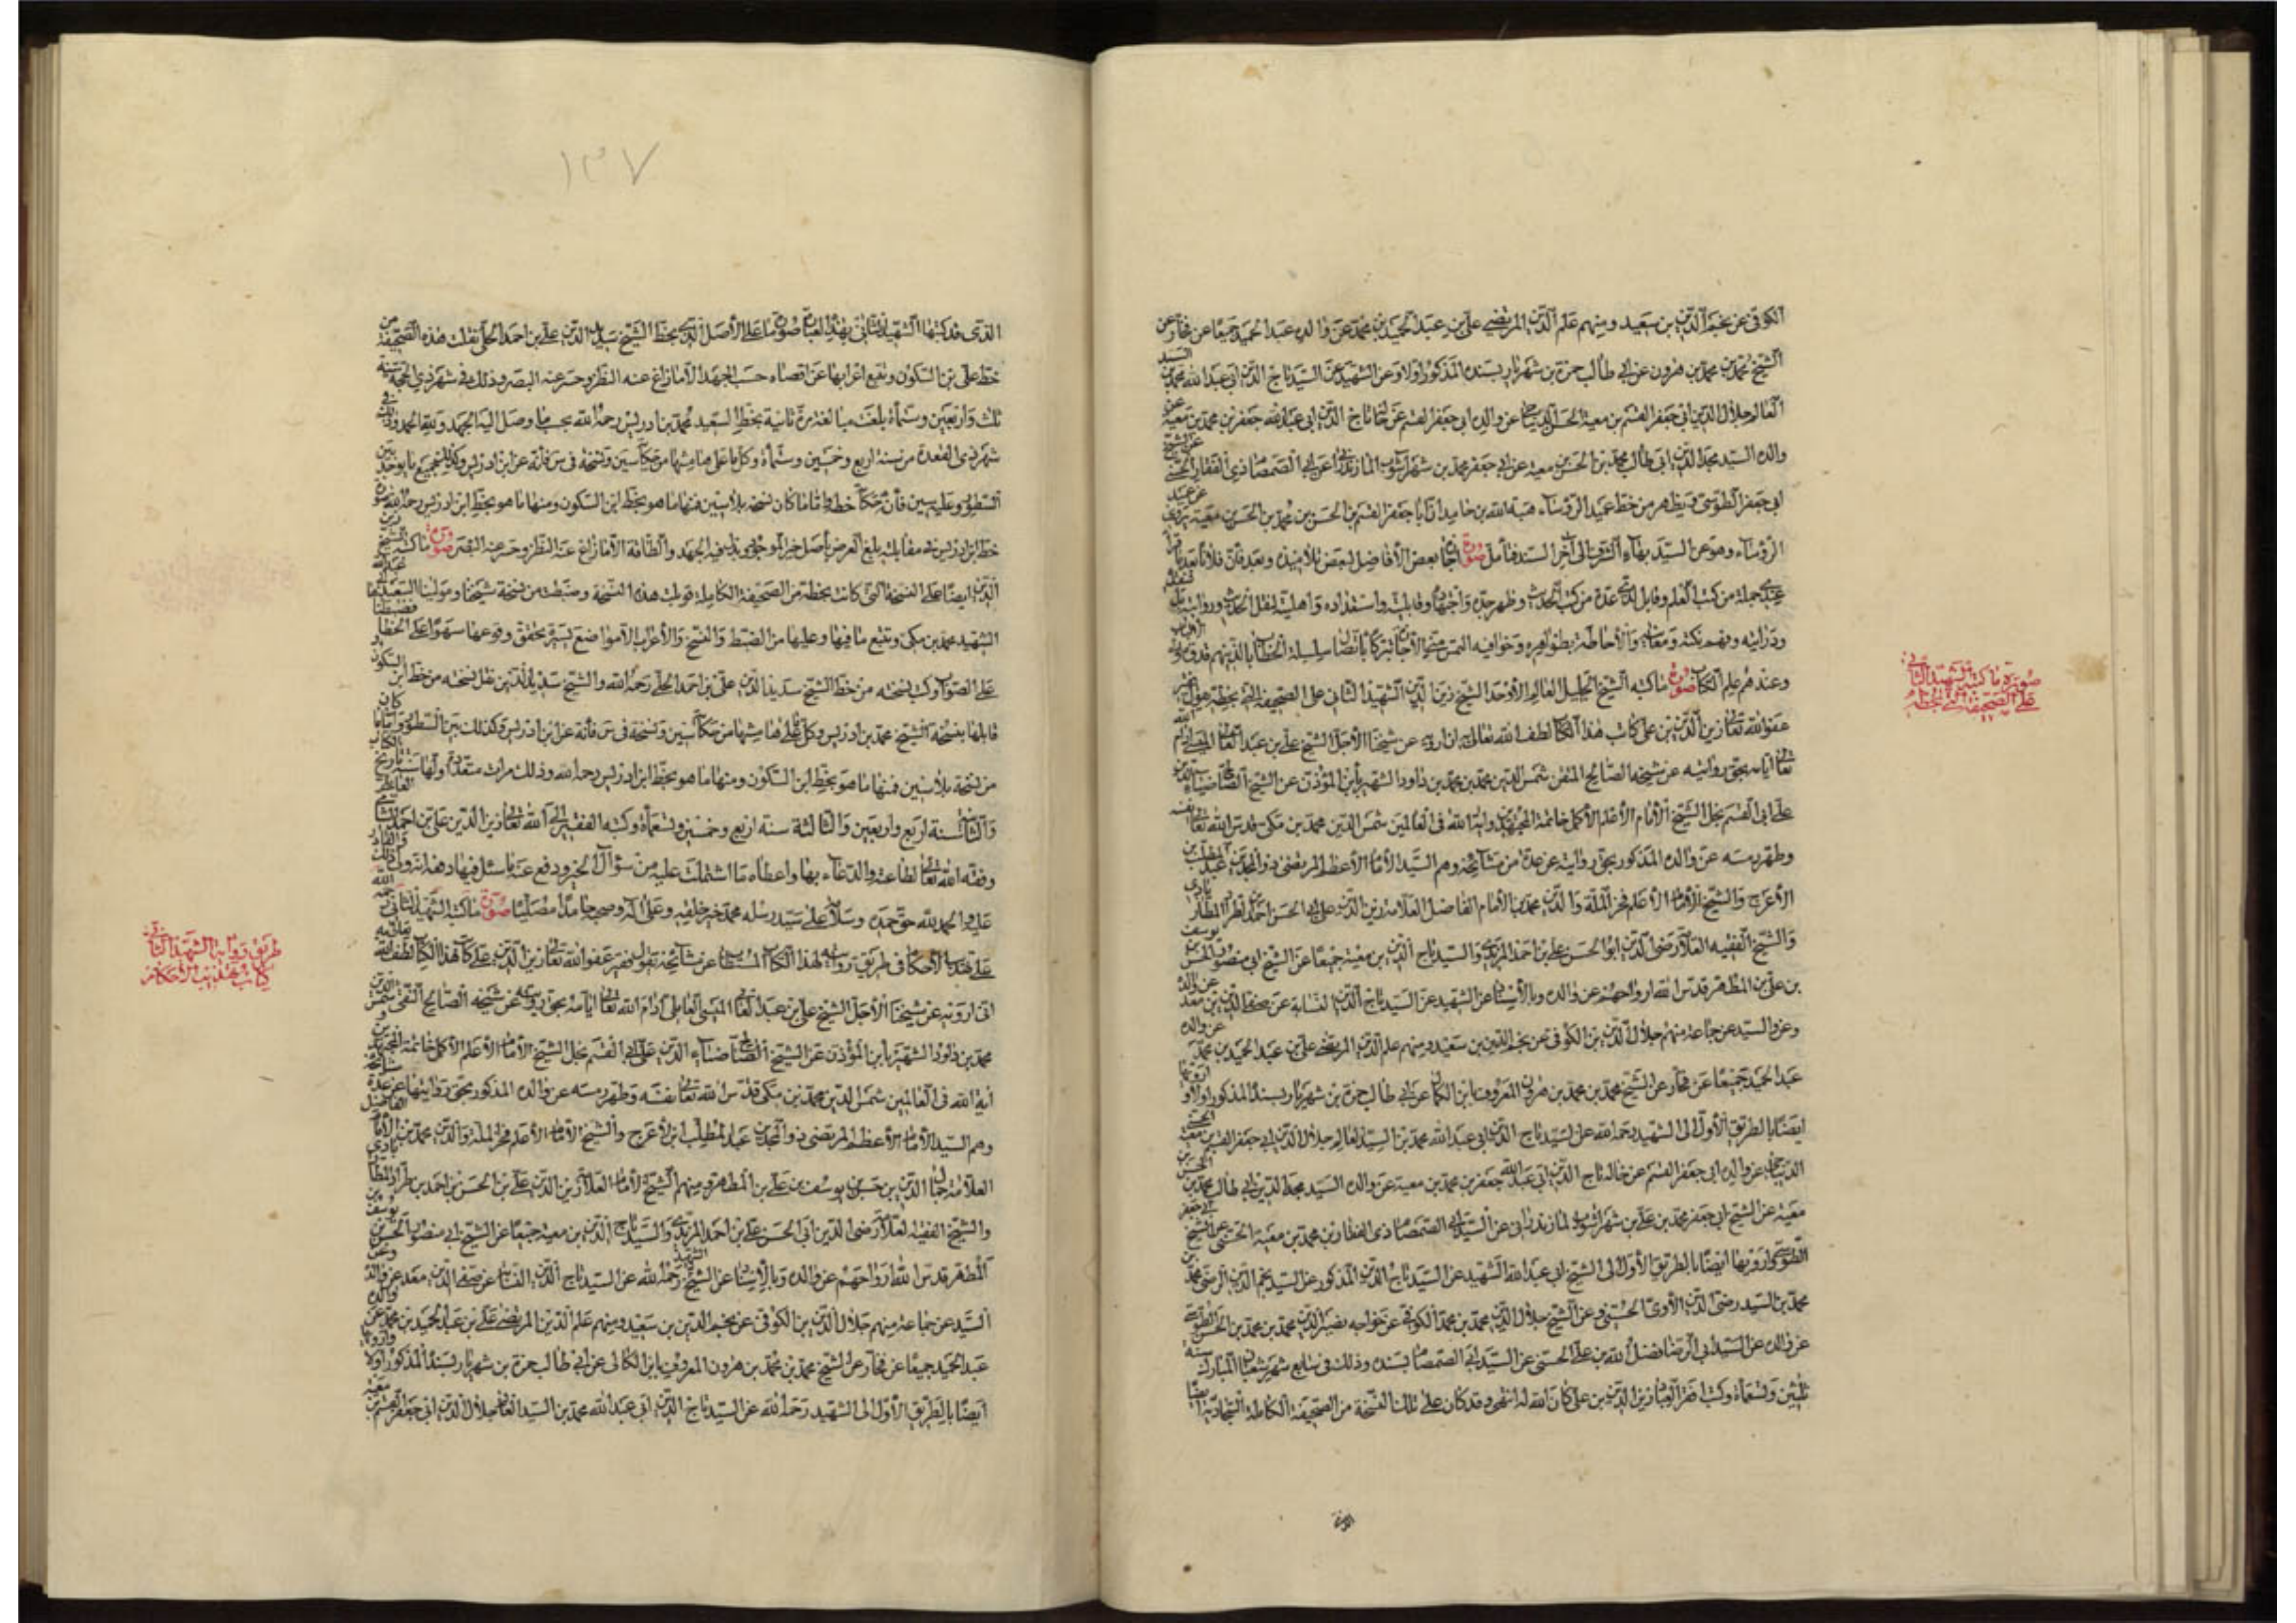 الكوفى عن نجم الدين بن سعيد ومنهم علم الدين المرتضى على بن عبد الحميد بن محمد عن والده عبد الحميد جميعا عن فخار عن
الشيخ محمد بن محمد بن هرون عن ابى طالب حمزة بن شهريار بسنده المذكور اولا وعن الشهيد عن السيد تاج الدين ابى عبد الله محمد بن السيد
العالم جلال الدين ابى جعفر القسم بن معية الحسنى الديباجى عن والده ابى جعفر القسم عن خاله تاج الدين ابى عبد الله جعفر بن محمد بن معية عن
والده السيد مجد الدين ابى طالب محمد بن الحسن بن معية عن ابى جعفر محمد بن شهرآشوب المازندرانى عن ابى الصمصام ذى الفقار الحسنى عن الشيخ
ابى جعفر الطوسى ويظهر من خط عميد الرؤساء هبة الله بن حامد ان ابا جعفر القسم بن الحسن بن محمد بن الحسن بن معية يروى عن عميد
الرؤساء وهو عن السيد بهاء الشرف الى آخر السند فتأمل صورة بعض الافاضل لبعض تلاميذه وبعد فان فلانا بعد
جملة من كتب العلم وقابل لدى عدة من كتب الحديث وظهر جده واجتهاده وقابليته واستعداده واهليته لنقل الحديث وروايته
ودرايته وفهم نكته ومعانيه والاحاطة بظواهره وخوافيه التمس منى الاجازة تبركا باتصال سلسلة الخطاب
وعندهم علم الكتاب صورة ما كتبه الشيخ الجليل العالم الاوحد الشيخ زين الدين الشهيد الثانى على الصحيفة التى بخطه يقول
عفو الله تعالى زين الدين بن على كاتب هذا الكتاب لطف الله تعالى به ان ارويه عن شيخنا الاجل الشيخ على بن عبد العالى الميسى ادام الله
تعالى ايامه بحق روايته عن شيخه الصالح المتقن شمس الدين محمد بن محمد بن داود الشهير بابن المؤذن عن الشيخ الصالح ضياء الدين
على ابى القسم نجل الشيخ الامام الاعلم الاكمل خاتمة المجتهدين وآية الله فى العالمين شمس الدين محمد بن مكى قدس الله تعالى نفسه
وطهر رمسه عن والده المذكور بحق روايته عن عدة من مشايخه وهم السيد الامام الاعظم المرتضى ذو المجدين عبد المطلب بن
الاعرج والشيخ الامام الاعلم فخر الملة والدين محمد بن الامام الفاضل العلامة زين الدين على بن الحسن احمد بن طراد المطارآبادى
والشيخ الفقيه العلامة رضى الدين ابو الحسن على بن احمد المزيدى والسيد تاج الدين بن معية جميعا عن الشيخ ابى منصور الحسن بن يوسف
بن على بن المطهر قدس الله ارواحهم عن والده وبالاسناد عن الشهيد عن السيد تاج الدين النسابة عن صفى الدين بن معد عن والده
وعن السيد عن جماعة منهم جلال الدين بن الكوفى عن نجم الدين بن سعيد ومنهم علم الدين المرتضى على بن عبد الحميد بن محمد عن والده
عبد الحميد جميعا عن فخار عن الشيخ محمد بن محمد بن هرون المعروف بابن الكال عن ابى طالب حمزة بن شهريار بسنده المذكور اولا وارويها
ايضا بالطريق الاول الى الشهيد رحمه الله عن السيد تاج الدين ابى عبد الله محمد بن السيد العالم جلال الدين ابى جعفر القسم بن معية الحسنى
الديباجى عن والده ابى جعفر القسم عن خاله تاج الدين ابى عبد الله جعفر بن محمد بن معية عن والده السيد مجد الدين ابى طالب محمد بن الحسن بن
معية عن الشيخ ابى جعفر محمد بن على بن شهرآشوب المازندرانى عن السيد ابى الصمصام ذى الفقار بن محمد بن معية الحسنى عن الشيخ ابى جعفر
الطوسى وارويها ايضا بالطريق الاول الى الشيخ ابى عبد الله الشهيد عن السيد تاج الدين المذكور عن السيد نجم الدين الرضى محمد بن
محمد بن السيد رضى الدين الآوى الحسينى وعن الشيخ جلال الدين محمد بن محمد الكوفى عن خواجه نصير الدين محمد بن محمد بن الحسن الطوسى
عن والده عن السيد ابى الرضا فضل الله بن على الحسنى عن السيد ابى الصمصام بسنده وذلك فى سابع شهر شعبان المبارك سنة
ثلثين وتسعمأة وكتب افقر العباد زين الدين بن على كان الله له انتهى وقد كان على تلك النسخة من الصحيفة الكاملة السجادية ايضا
صورة ما كتبه الشهيد الثانى
على الصحيفة التى بخطه
١٣٧
الذى قد كتبها الشهيد الثانى بهذه العبارة صورة ما على الاصل الذى بخط الشيخ سديد الدين على بن احمد الحلى نقلت هذه الصحيفة من
خط على بن السكون وتتبع اعرابها عن اقصاه حسب الجهد الا ما زاغ عنه النظر وحسر عنه البصر وذلك فى شهر ذى الحجة سنة
ثلث واربعين وستمأة بلغت مقابلة مرة ثانية بخط السعيد محمد بن ادريس رحمه الله بحسب ما وصل اليه الجهد ولله الحمد وذلك فى
شهر ذى القعدة من سنة اربع وخمسين وستمأة وكل ما على هامشها من حكاية سين ونسخة فى س فانه عن ابن ادريس وكذلك جميع ما يوجد بين
السطور وعليه سين فان حكاية خطه واما ما كان نسخة بلا سين فمنها ما هو بخط ابن السكون ومنها ما هو بخط ابن ادريس رحمه الله صورة
خط ابن ادريس فى مقابلته بلغ العرض باصل خير الموجود وبذل فيه الجهد والطاقة الا ما زاغ عنه النظر وحسر عنه البصر صورة ما كتبه الشيخ زين
الدين ايضا على النسخة التى كانت بخطه من الصحيفة الكاملة قوبلت هذه النسخة وضبطت من نسخة شيخنا ومولينا السعيد ابى عبد الله
الشهيد محمد بن مكى وتتبع ما فيها وعليها من الضبط والنسخ والاعراب الا مواضع يسيرة تحقق وقوعها سهوا على الخطاء فضبطنا
على الصواب وكتب نسخته من خط الشيخ سديد الدين على بن احمد الحلى رحمه الله والشيخ سديد الدين نقل نسخته من خط ابن السكون
قابلها بنسخة الشيخ محمد بن ادريس وكل ما على هامشها من حكاية سين ونسخة فى س فانه عن ابن ادريس وكذلك بين السطور واما ما كان
من نسخة بلا سين فمنها ما هو بخط ابن السكون ومنها ما هو بخط ابن ادريس رحمه الله وذلك مرات متعددة
والثالثة سنة اربع وخمسين وتسعمأة وكتبه الفقير الى الله تعالى زين الدين على بن احمد الشامى العاملى
وفقه الله تعالى لطاعته والدعاء بها واعطاه ما اشتملت عليه من سؤال الخير ودفع عنه ما سئل فيها دفعه انه ولى ذلك والقادر
عليه والحمد لله حق حمده وسلام على سيد رسله محمد خير خلقه وعلى آله وصحبه حامدا مصليا صورة ما كتبه الشهيد الثانى رحمه الله
على تهذيب الاحكام فى طريق روايته لهذا الكتاب المستطاب عن مشايخه يقول فقير عفو الله تعالى زين الدين بن على كاتب هذا الكتاب لطف الله
انى ارويه عن شيخنا الاجل الشيخ على بن عبد العالى الميسى العاملى ادام الله تعالى ايامه بحق روايته عن شيخه الصالح التقى شمس الدين
محمد بن داود الشهير بابن المؤذن عن الشيخ الصالح ضياء الدين على ابى القسم نجل الشيخ الامام الاعلم الاكمل خاتمة المجتهدين و
آية الله فى العالمين شمس الدين محمد بن مكى قدس الله تعالى نفسه وطهر رمسه عن والده المذكور بحق روايتها عن عدة من مشايخه
وهم السيد الامام الاعظم المرتضى ذو المجدين عبد المطلب ابن الاعرج والشيخ الامام الاعلم فخر الملة والدين محمد بن الامام الفاضل
العلامة جمال الدين بن حسن بن يوسف بن على بن المطهر ومنهم الشيخ الامام العلامة زين الدين على بن الحسن بن احمد بن طراد المطارآبادى
والشيخ الفقيه العلامة رضى الدين ابى الحسن على بن احمد المزيدى والسيد تاج الدين بن معية جميعا عن الشيخ ابى منصور الحسن بن يوسف بن
المطهر قدس الله ارواحهم عن والده وبالاسناد عن الشيخ الشهيد رحمه الله عن السيد تاج الدين النسابة عن صفى الدين معد عن والده وعن
السيد عن جماعة منهم جلال الدين بن الكوفى عن نجم الدين بن سعيد ومنهم علم الدين المرتضى على بن عبد الحميد بن محمد عن والده
عبد الحميد جميعا عن فخار عن الشيخ محمد بن محمد بن هرون المعروف بابن الكال عن ابى طالب حمزة بن شهريار بسنده المذكور اولا وارويها
ايضا بالطريق الاول الى الشهيد رحمه الله عن السيد تاج الدين ابى عبد الله محمد بن السيد العالم جلال الدين ابى جعفر القسم بن معية
طريق رواية الشهيد الثانى
كتاب تهذيب الاحكام